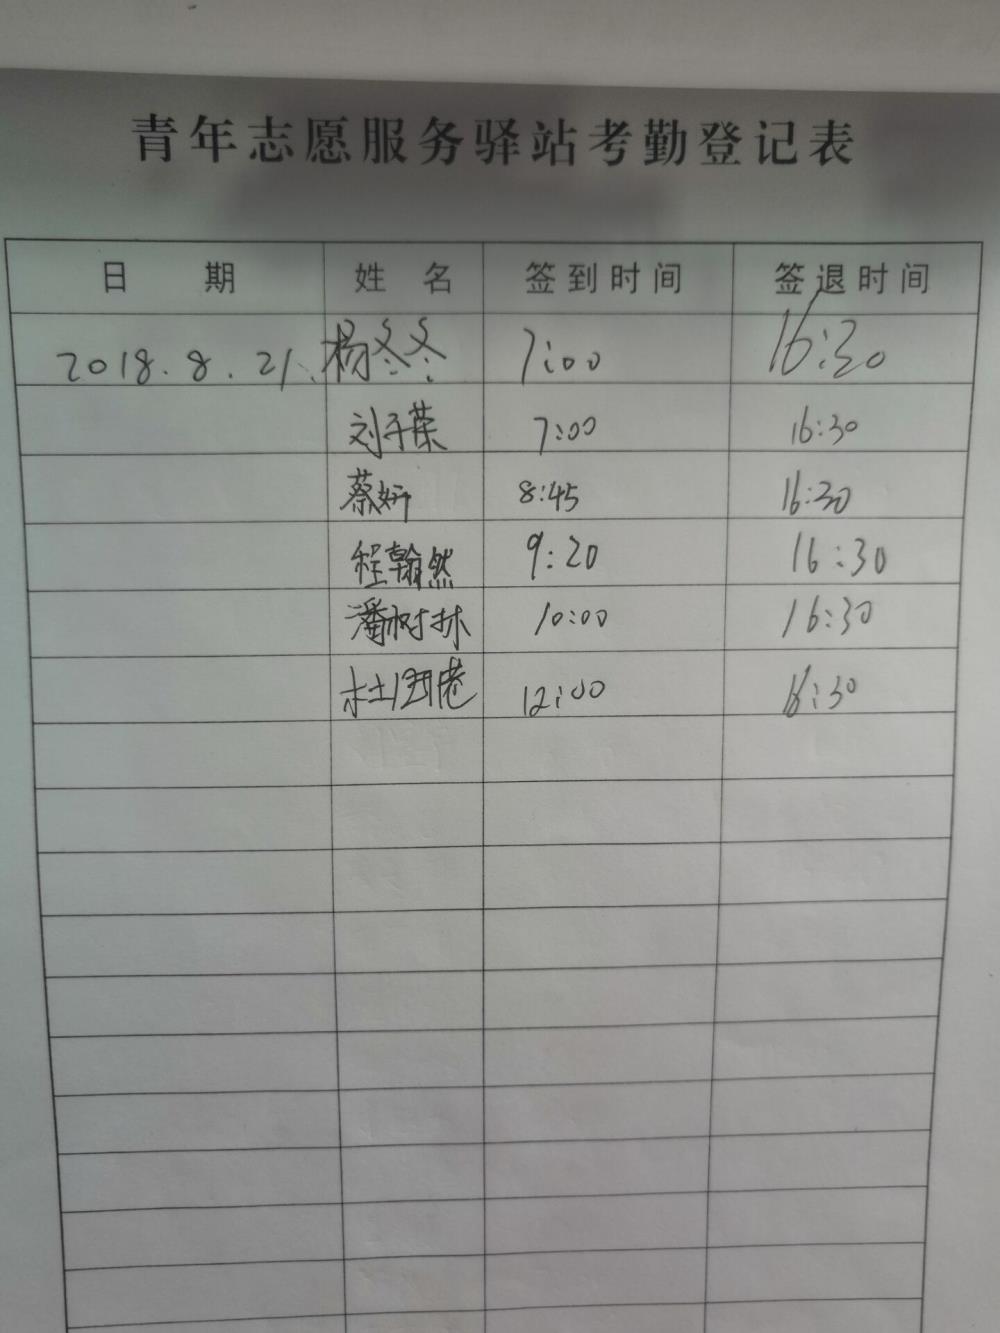 青年志愿服务驿站考勤登记表
日 期 姓 名 签到时间 签退时间
2018.8.21. 杨冬冬 7:00 16:30
刘子荣 7:00 16:30
蔡妍 8:45 16:30
程翰然 9:20 16:30
潘树林 10:00 16:30
12:00 16:30